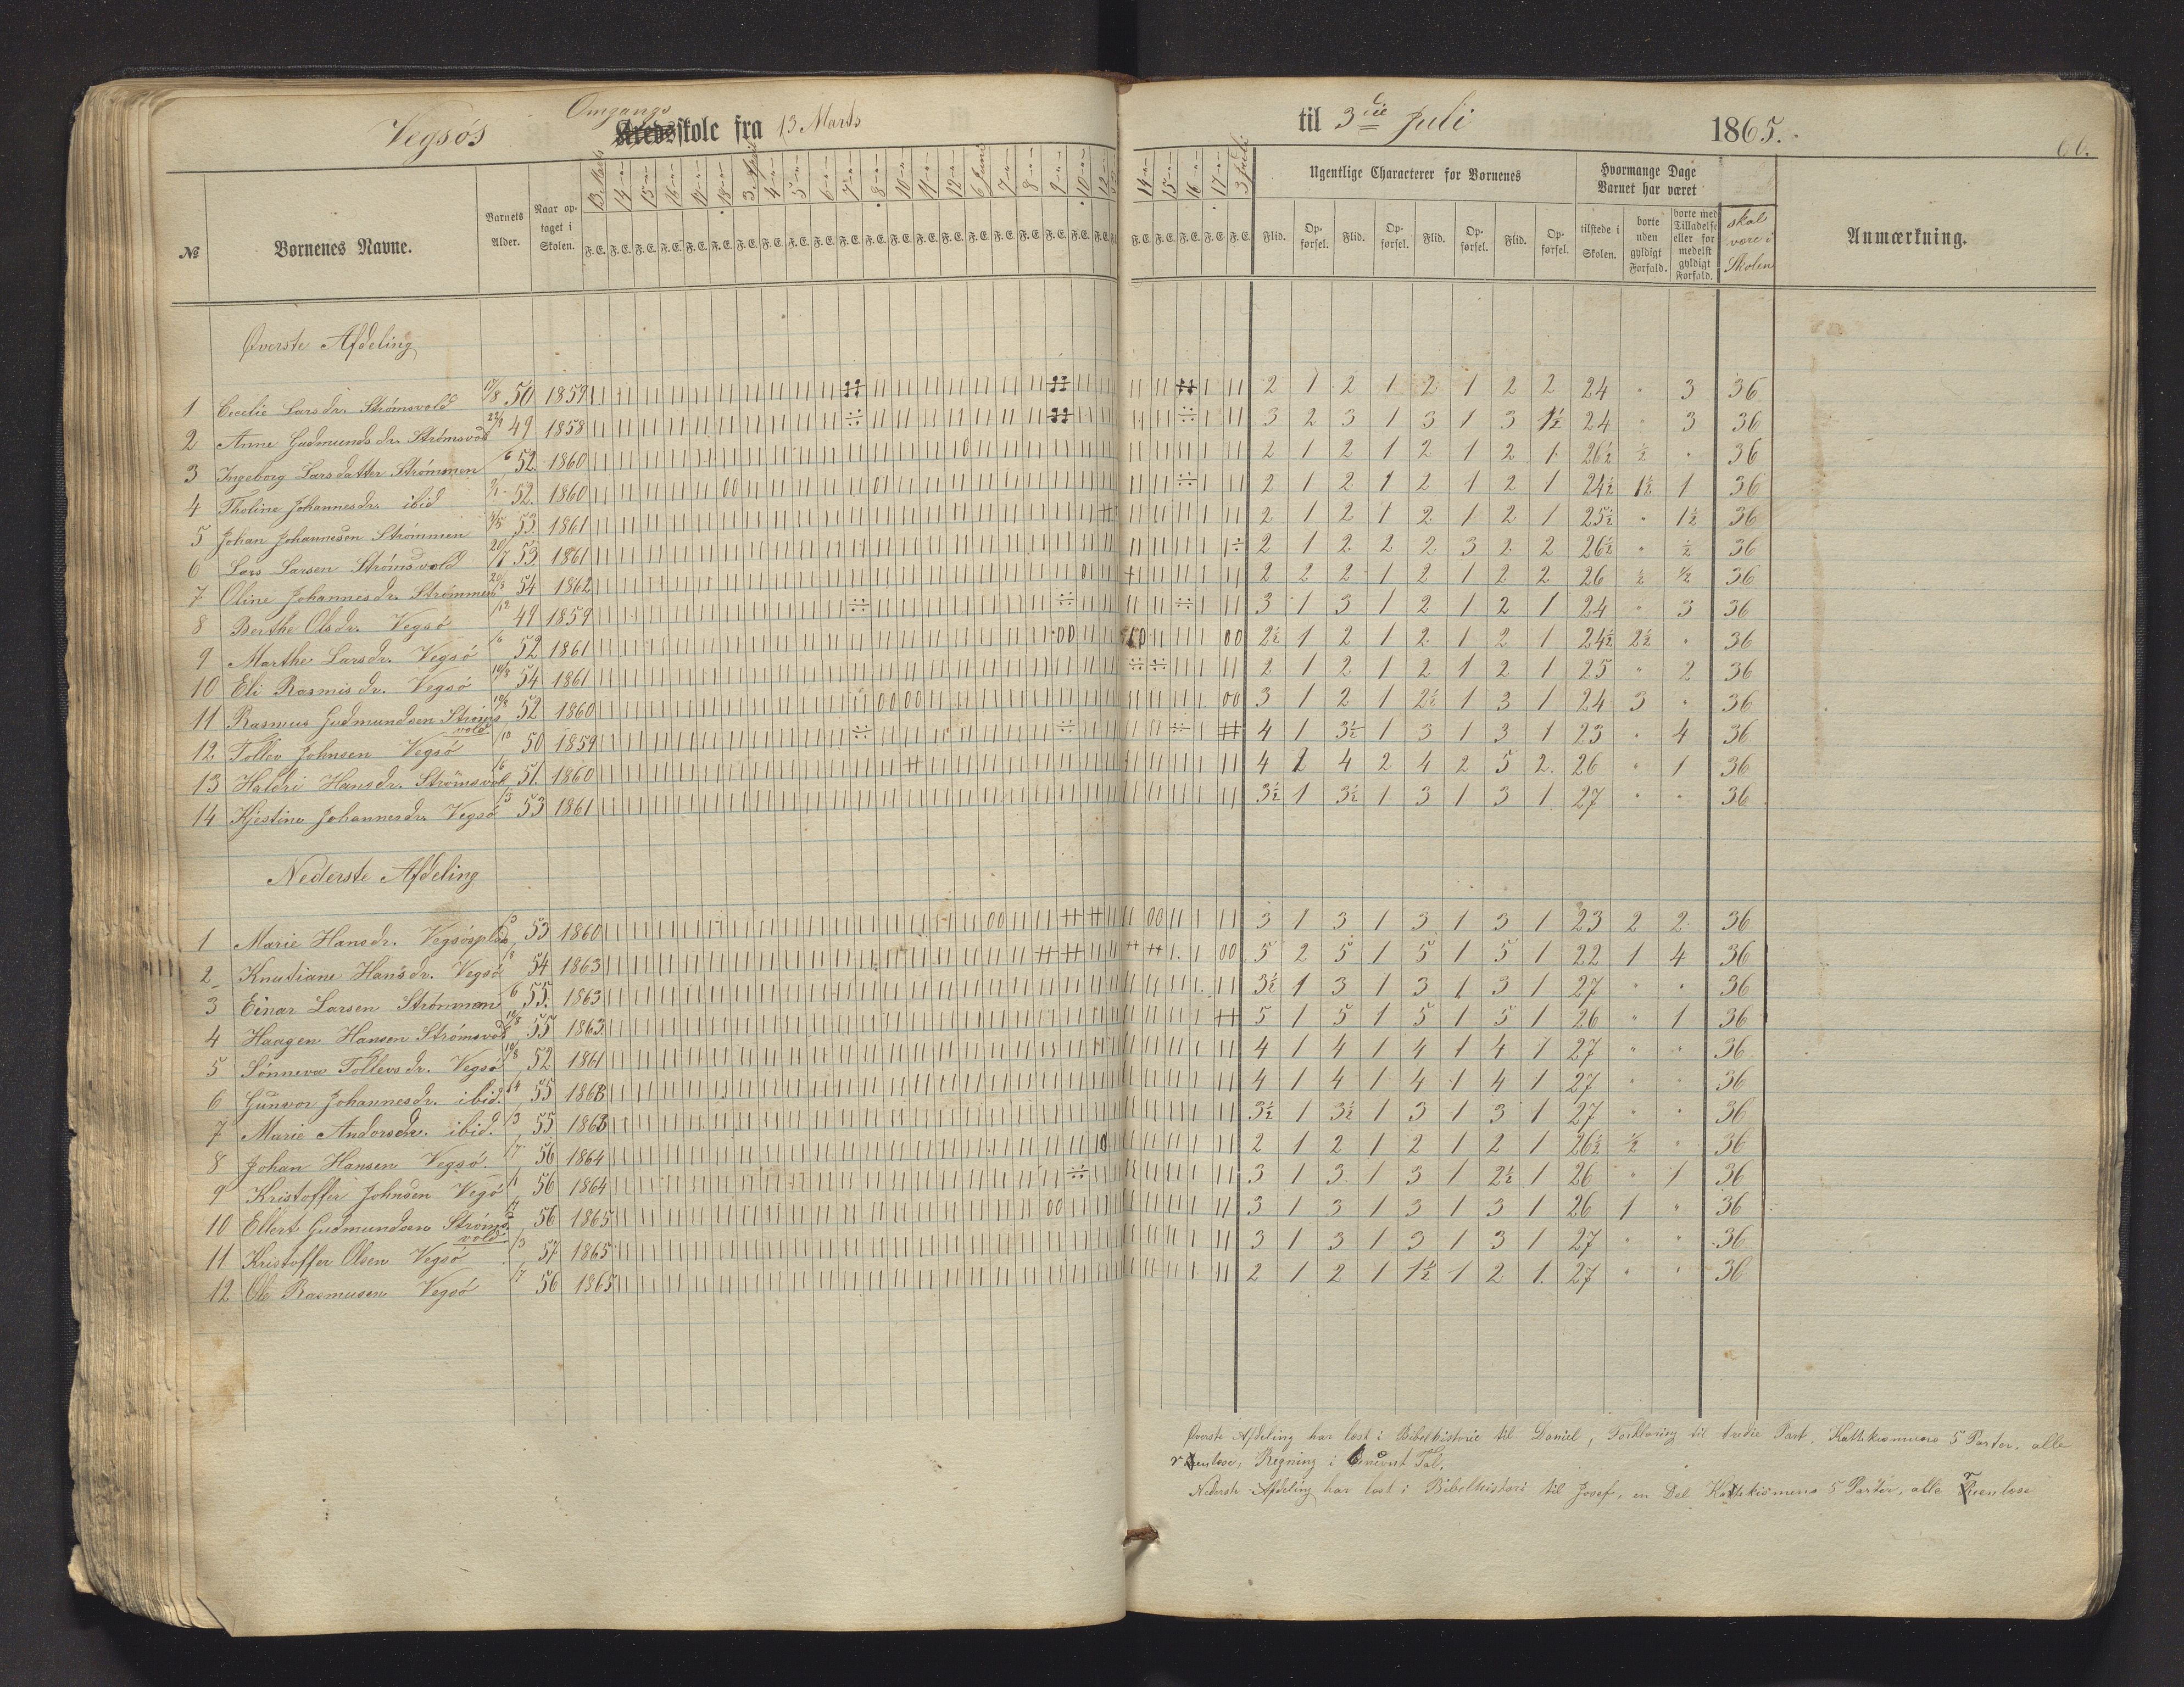 Vegsøs Omgangs Kredsskole fra 13 Marts til 3die Juli 1865.
№ Børnenes Navne. Barnets Alder. Naar optaget i Skolen. Ugentlige Characterer for Børnenes Hvormange Dage Barnet har været Anmærkning.
Flid. Opførsel. Flid. Opførsel. Flid. Opførsel. Flid. Opførsel. tilstede i Skolen. borte uden gyldigt Forfald. borte med Tilladelse eller formedelst gyldigt Forfald. skal være i Skolen
Øverste Afdeling
1 Cecelie Larsdr. Strømsvold 50 1859 2 1 2 1 2 1 2 2 24 " 3 36
2 Anne Gudmundsdr. Strømsvod 49 1858 3 2 3 1 3 1 3 1½ 24 " 3 36
3 Ingeborg Larsdatter Strømmen 52 1860 2 1 2 1 2 1 2 1 26½ ½ " 36
4 Tholine Johannesdr. ibid 52 1860 2 1 2 1 2 1 2 1 24½ 1½ 1 36
5 Johan Johannesen Strømmen 53 1861 2 1 2 1 2 1 2 1 25½ " 1½ 36
6 Lars Larsen Strømsvold 53 1861 2 1 2 2 2 3 2 2 26½ " ½ 36
7 Oline Johannesdr. Strømmen 54 1862 2 2 2 1 2 1 2 2 26 ½ ½ 36
8 Berthe Olsdr. Vegsø 49 1859 3 1 3 1 2 1 2 1 24 " 3 36
9 Marthe Larsdr. Vegsø 52 1861 2½ 1 2 1 2 1 2 1 24½ 2½ " 36
10 Eli Rasmisdr. Vegsø 54 1861 2 1 2 1 2 1 2 1 25 " 2 36
11 Rasmus Gudmundsen Strømsvold 52 1860 3 1 2 1 2½ 1 3 1 24 3 " 36
12 Tollev Johnsen Vegsø 50 1859 4 1 3½ 1 3 1 3 1 23 " 4 36
13 Haldri Hansdr. Strømsvol 51 1860 4 2 4 2 4 2 5 2 26 " 1 36
14 Kjestine Johannesdr. Vegsø 53 1861 3½ 1 3½ 1 3 1 3 1 27 " " 36
Nederste Afdeling
1 Marie Hansdr. Vegsøsplads 53 1860 3 1 3 1 3 1 3 1 23 2 2 36
2 Knudiane Hansdr. Vegsø 54 1863 5 2 5 1 5 1 5 1 22 1 4 36
3 Einar Larsen Strømmen 55 1863 3½ 1 3 1 3 1 3 1 27 " " 36
4 Haagen Hansen Strømsvod 55 1863 5 1 5 1 5 1 5 1 26 " 1 36
5 Sønneva Tollevsdr. Vegsø 52 1861 4 1 4 1 4 1 4 1 27 " " 36
6 Gunvor Johannesdr. ibid. 55 1863 4 1 4 1 4 1 4 1 27 " " 36
7 Marie Andersdr. ibid. 55 1863 3½ 1 3½ 1 3 1 3 1 27 " " 36
8 Johan Hansen Vegsø. 56 1864 2 1 2 1 2 1 2 1 26½ ½ " 36
9 Kristoffer Johnsen Vegsø 56 1864 3 1 3 1 3 1 2½ 1 26 " 1 36
10 Ellert Gudmundsen Strømsvold 56 1865 3 1 3 1 3 1 3 1 26 1 " 36
11 Kristoffer Olsen Vegsø 57 1865 3 1 3 1 3 1 3 1 27 " " 36
12 Ole Rasmusen Vegsø 56 1865 2 1 2 1 1½ 1 2 1 27 " " 36
Øverste Afdeling har læst i Bibelhistorie til Daniel, Forklaring til tredie Part, Kattekismens 5 Parter, alle
renlæse, Regning i Tal.
Nederste Afdeling har læst i Bibelhistori til Josef, en Del Kattekismens 5 Parter, alle renlæse